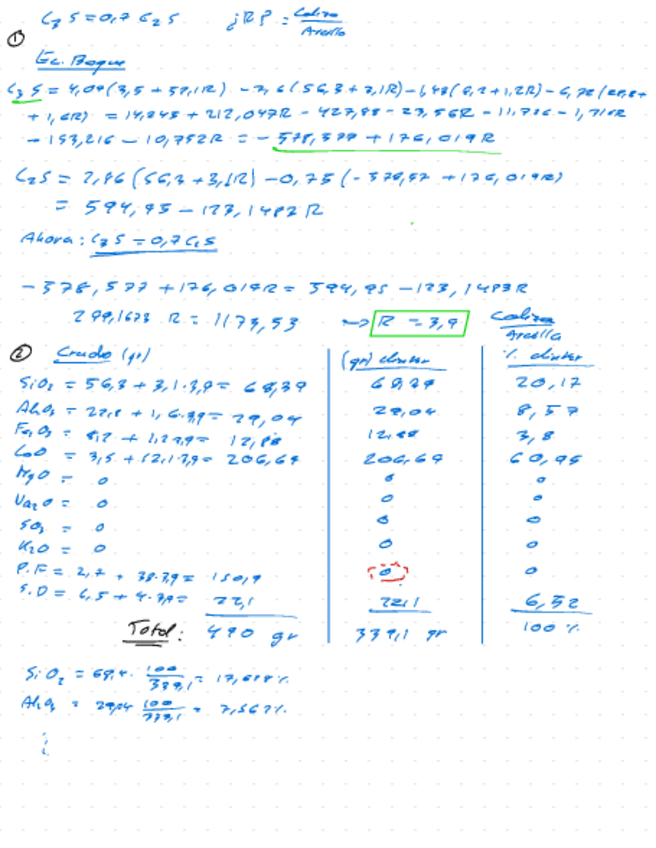 ① C₃S = 0,7 C₂S ¿R? = Caliza/Arcilla
Ec. Bogue
C₃S = 4,07(3,5 + 52,1R) - 7,6(56,3 + 3,1R) - 1,43(8,2 + 1,2R) - 6,72(22,8 +
+ 1,6R) = 14,245 + 212,047R - 427,88 - 23,56R - 11,726 - 1,716R
- 153,216 - 10,752R = - 578,577 + 176,019R
C₂S = 2,86(56,3 + 3,1R) - 0,75(-578,57 + 176,019R)
= 594,95 - 123,1482R
Ahora: C₃S = 0,7C₂S
- 578,577 + 176,019R = 594,95 - 123,1483R
299,1673 R = 1173,53 → R = 3,9 Caliza/Arcilla
② Crudo (gr) (gr) clinker % clinker
SiO₂ = 56,3 + 3,1·3,9 = 68,39 68,39 20,17
Al₂O₃ = 22,8 + 1,6·3,9 = 29,04 29,04 8,57
Fe₂O₃ = 8,2 + 1,2·3,9 = 12,88 12,88 3,8
CaO = 3,5 + 52,1·3,9 = 206,69 206,69 60,95
MgO = 0 0 0
Na₂O = 0 0 0
SO₃ = 0 0 0
K₂O = 0 0 0
P.F = 2,7 + 38·3,9 = 150,9 0 0
S.D = 6,5 + 4·3,9 = 22,1 22,1 6,52
Total: 490 gr 339,1 gr 100 %
SiO₂ = 68,4 · 100/339,1 = 17,688%
Al₂O₃ = 29,04 100/339,1 = 7,567%
⋮